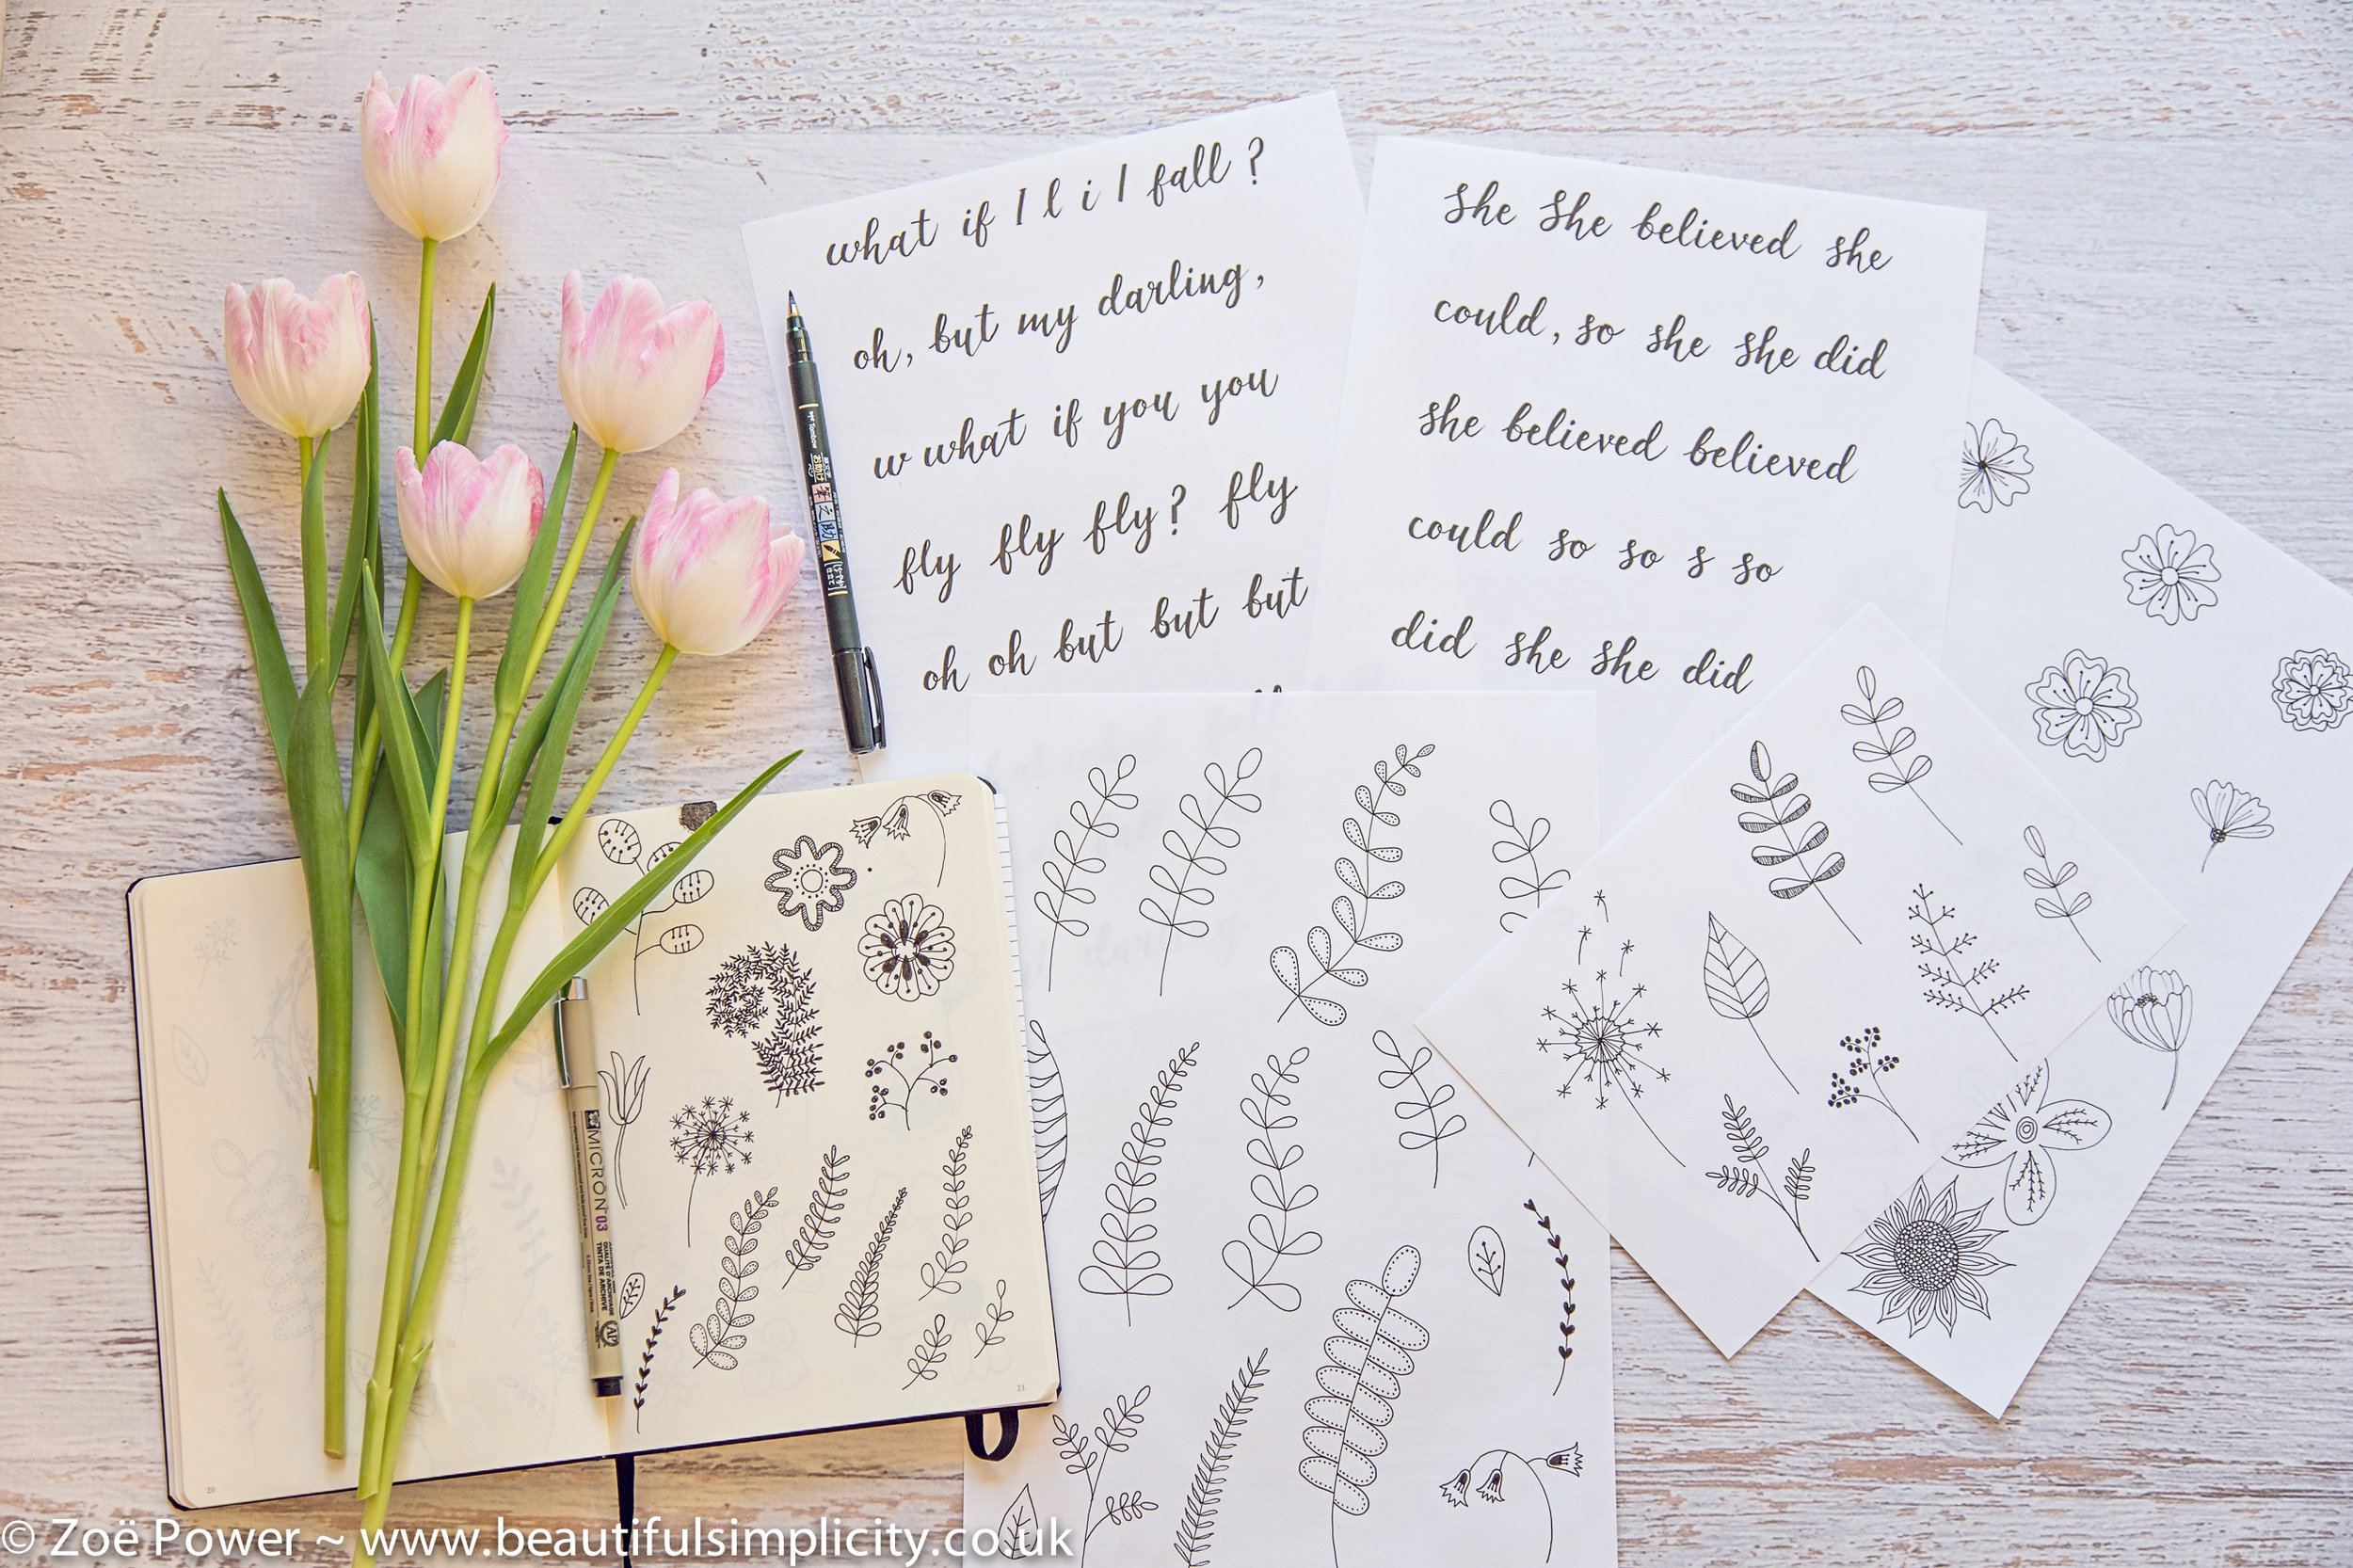 what if I l i I fall ?
oh, but my darling,
w what if you you
fly fly fly? fly
oh oh but but but
she she believed she
could, so she she did
she believed believed
could so so s so
did she she did
Tombow
MICRON 03
20
21
© Zoë Power ~ www.beautifulsimplicity.co.uk